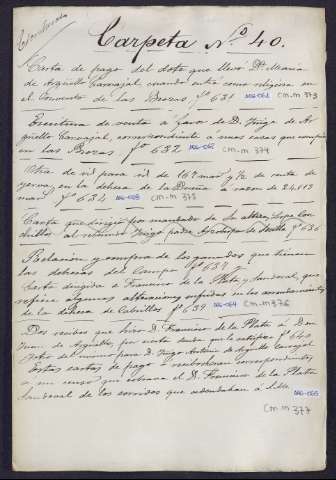 Carpeta N.º 40.
Carta de pago del dote que llevó D.ª María
de Argüello Carvajal cuando entró como religiosa en
el Convento de las Brozas fº 631 cm.m 373
Escritura de venta á favor de D. Iñigo de Ar
güello Carvajal, correspondiente á unas casas que compró
en las Brozas fº 632 cm.m 374
Otra de id para id de 167 mar.s y ½ de renta de
yerva, en la dehesa de la a razon de 24.113
mar.s fº 634 cm.m 375
Carta que dirigió por mandado de Su alteza Lope Con
chillos al fº 636
Relación y compra de los ganados que tienen
las dehesas del Campo fº 637
Carta dirigida a Francisco de la Plata y Sandoval, que
refiere algunas alteraciones sufridas en los arrendamientos
de la dehesa de Cabrillas fº 639 cm.m 376
Dos recibos que hizo D. Francisco de la Plata a Don
Juan de Argüello, por cierta deuda que le satisfizo fº 640
Otro del mismo para D. Iñigo Antonio de Argüello Carvajal
Estas cartas de pago ó recibos eran correspondientes
a un censo que cobrava el D. Francisco de la Plata
Sandoval de los corridos que adeudaban á
cm.m 377